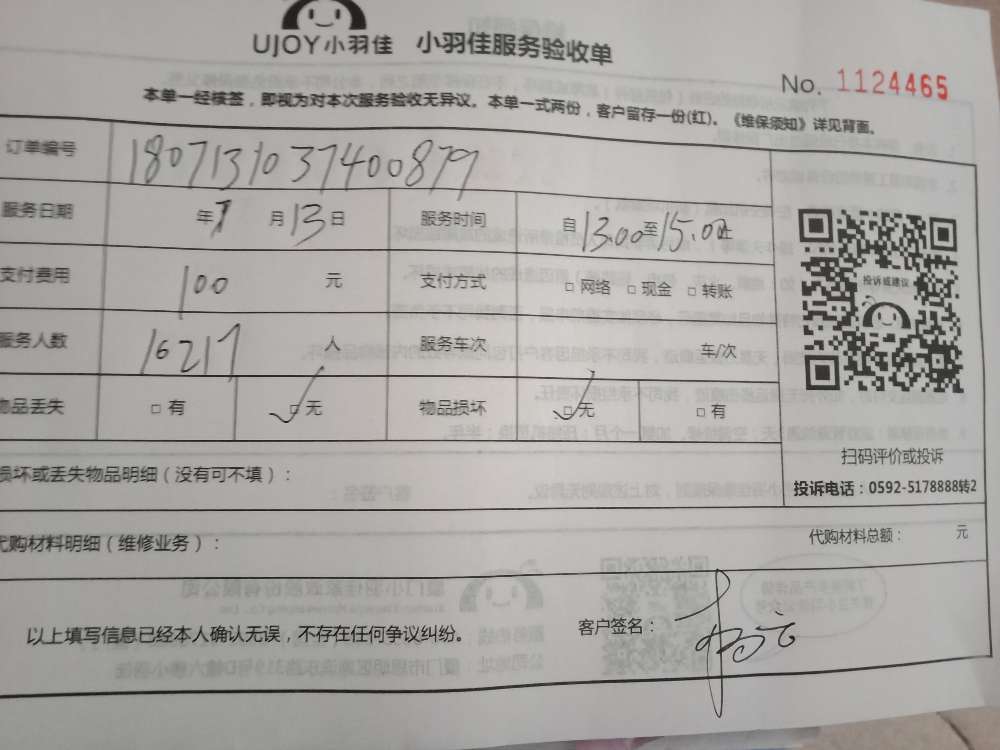 UJOY小羽佳 小羽佳服务验收单
No. 1124465
本单一经核签，即视为对本次服务验收无异议。本单一式两份，客户留存一份(红)。《维保须知》详见背面。
订单编号 1807131037400879
服务日期 年7月13日 服务时间 自13.00至15.00止
支付费用 100 元 支付方式 □ 网络 □ 现金 □ 转账
服务人数 16217 人 服务车次 车/次
物品丢失 □ 有 □ 无 物品损坏 □ 无 □ 有
投诉或建议
扫码评价或投诉
损坏或丢失物品明细（没有可不填）：
投诉电话：0592-5178888转2
代购材料明细（维修业务）：
代购材料总额： 元
以上填写信息已经本人确认无误，不存在任何争议纠纷。
客户签名：